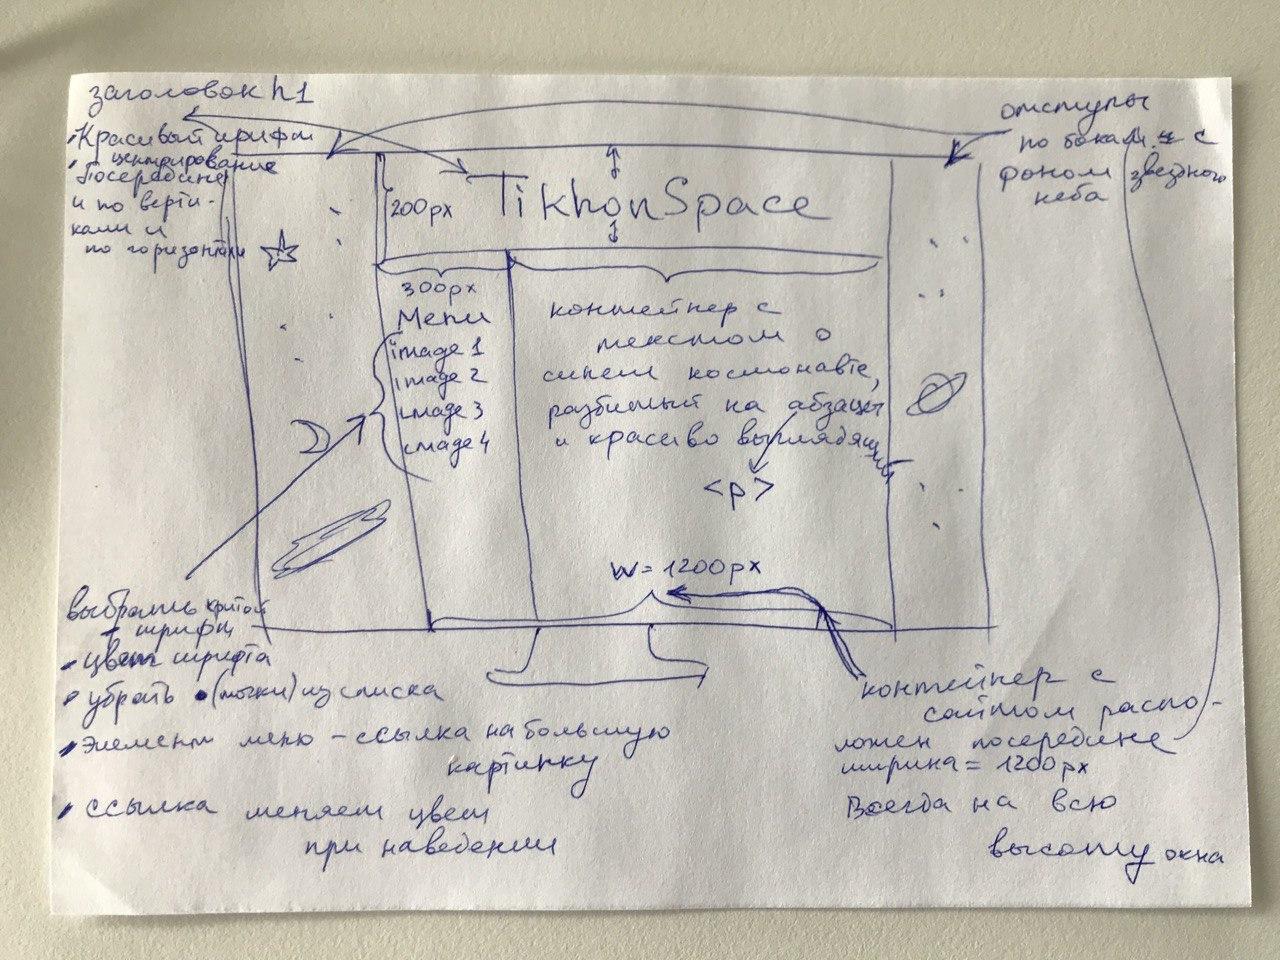 заголовок h1
• Красивый шрифт
• центрирование
посередине
и по верти-
кали и
по горизонтали
отступы
по бокам с
фоном звездного
неба
200px
TikhonSpace
300px
Menu
image 1
image 2
image 3
image 4
контейнер с
текстом о
синем космонавте,
разбитый на абзацы
и красиво выглядящий
<p>
W = 1200px
выбрать крутой
шрифт
• цвет шрифта
• убрать •(точки) из списка
• Элемент меню - ссылка на большую
картинку
• ссылка меняет цвет
при наведении
контейнер с
сайтом распо-
ложен посередине
ширина = 1200px
Всегда на всю
высоту окна